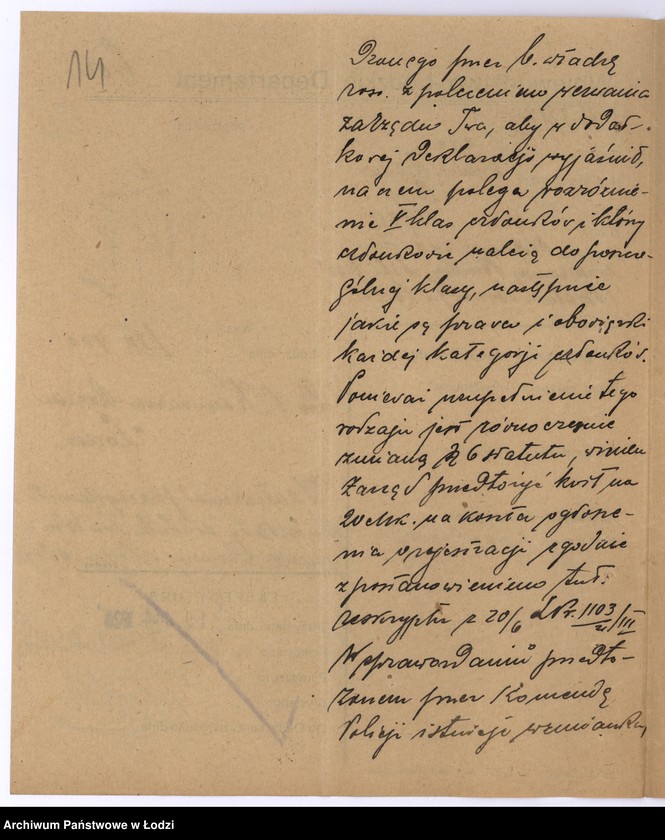 14
dzonego przez b. władzę
ros. z poleceniem wezwania
zarządu Twa, aby w dodat-
kowej deklaracji wyjaśnił,
na czem polega rozróżnie-
nie V klas członków i który
członkowie należą do poszcze-
gólnej klasy, następnie
jakie są prawa i obowiązki
każdej kategorji członków.
Ponieważ uzupełnienie tego
rodzaju jest równocześnie
zmianą § 6 statutu, winien
Zarząd przedłożyć kwit na
20 Mk. na koszta ogłosze-
nia o rejestracji zgodnie
z postanowieniem tut.
reskryptu z 20/6 L.Nr. 1103/21/III
W sprawozdaniu przedło-
żonem przez Komendę
Policji istnieje wzmianka,
Archiwum Państwowe w Łodzi